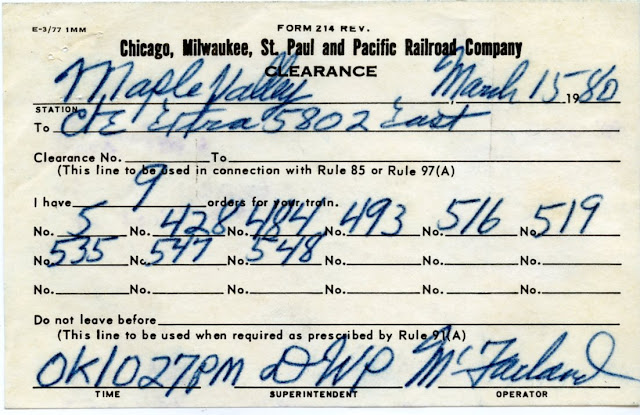 E-3/77 1MM
FORM 214 REV.
Chicago, Milwaukee, St. Paul and Pacific Railroad Company
CLEARANCE
Maple Valley, March 15 1980
STATION
To C&E Extra 5802 East
Clearance No. To
(This line to be used in connection with Rule 85 or Rule 97(A)
I have 9 orders for your train.
No. 5 No. 428 No. 484 No. 493 No. 516 No. 519
No. 535 No. 547 No. 548 No. No. No.
No. No. No. No. No. No.
Do not leave before
(This line to be used when required as prescribed by Rule 91(A)
OK 1027PM DWP McFarland
TIME SUPERINTENDENT OPERATOR